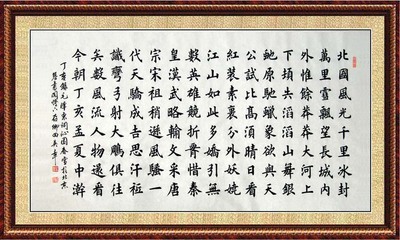 北國風光千里冰封
萬里雪飄望長城內
外惟餘莽莽大河上
下頓失滔滔山舞銀
蛇原馳蠟象欲與天
公試比高須晴日看
紅裝素裹分外妖嬈
江山如此多嬌引無
數英雄競折腰惜秦
皇漢武略輸文采唐
宗宋祖稍遜風騷一
代天驕成吉思汗祗
識彎弓射大鵰俱往
矣數風流人物還看
今朝丁亥孟夏中澣
錄毛澤東詞沁園春雪於北京